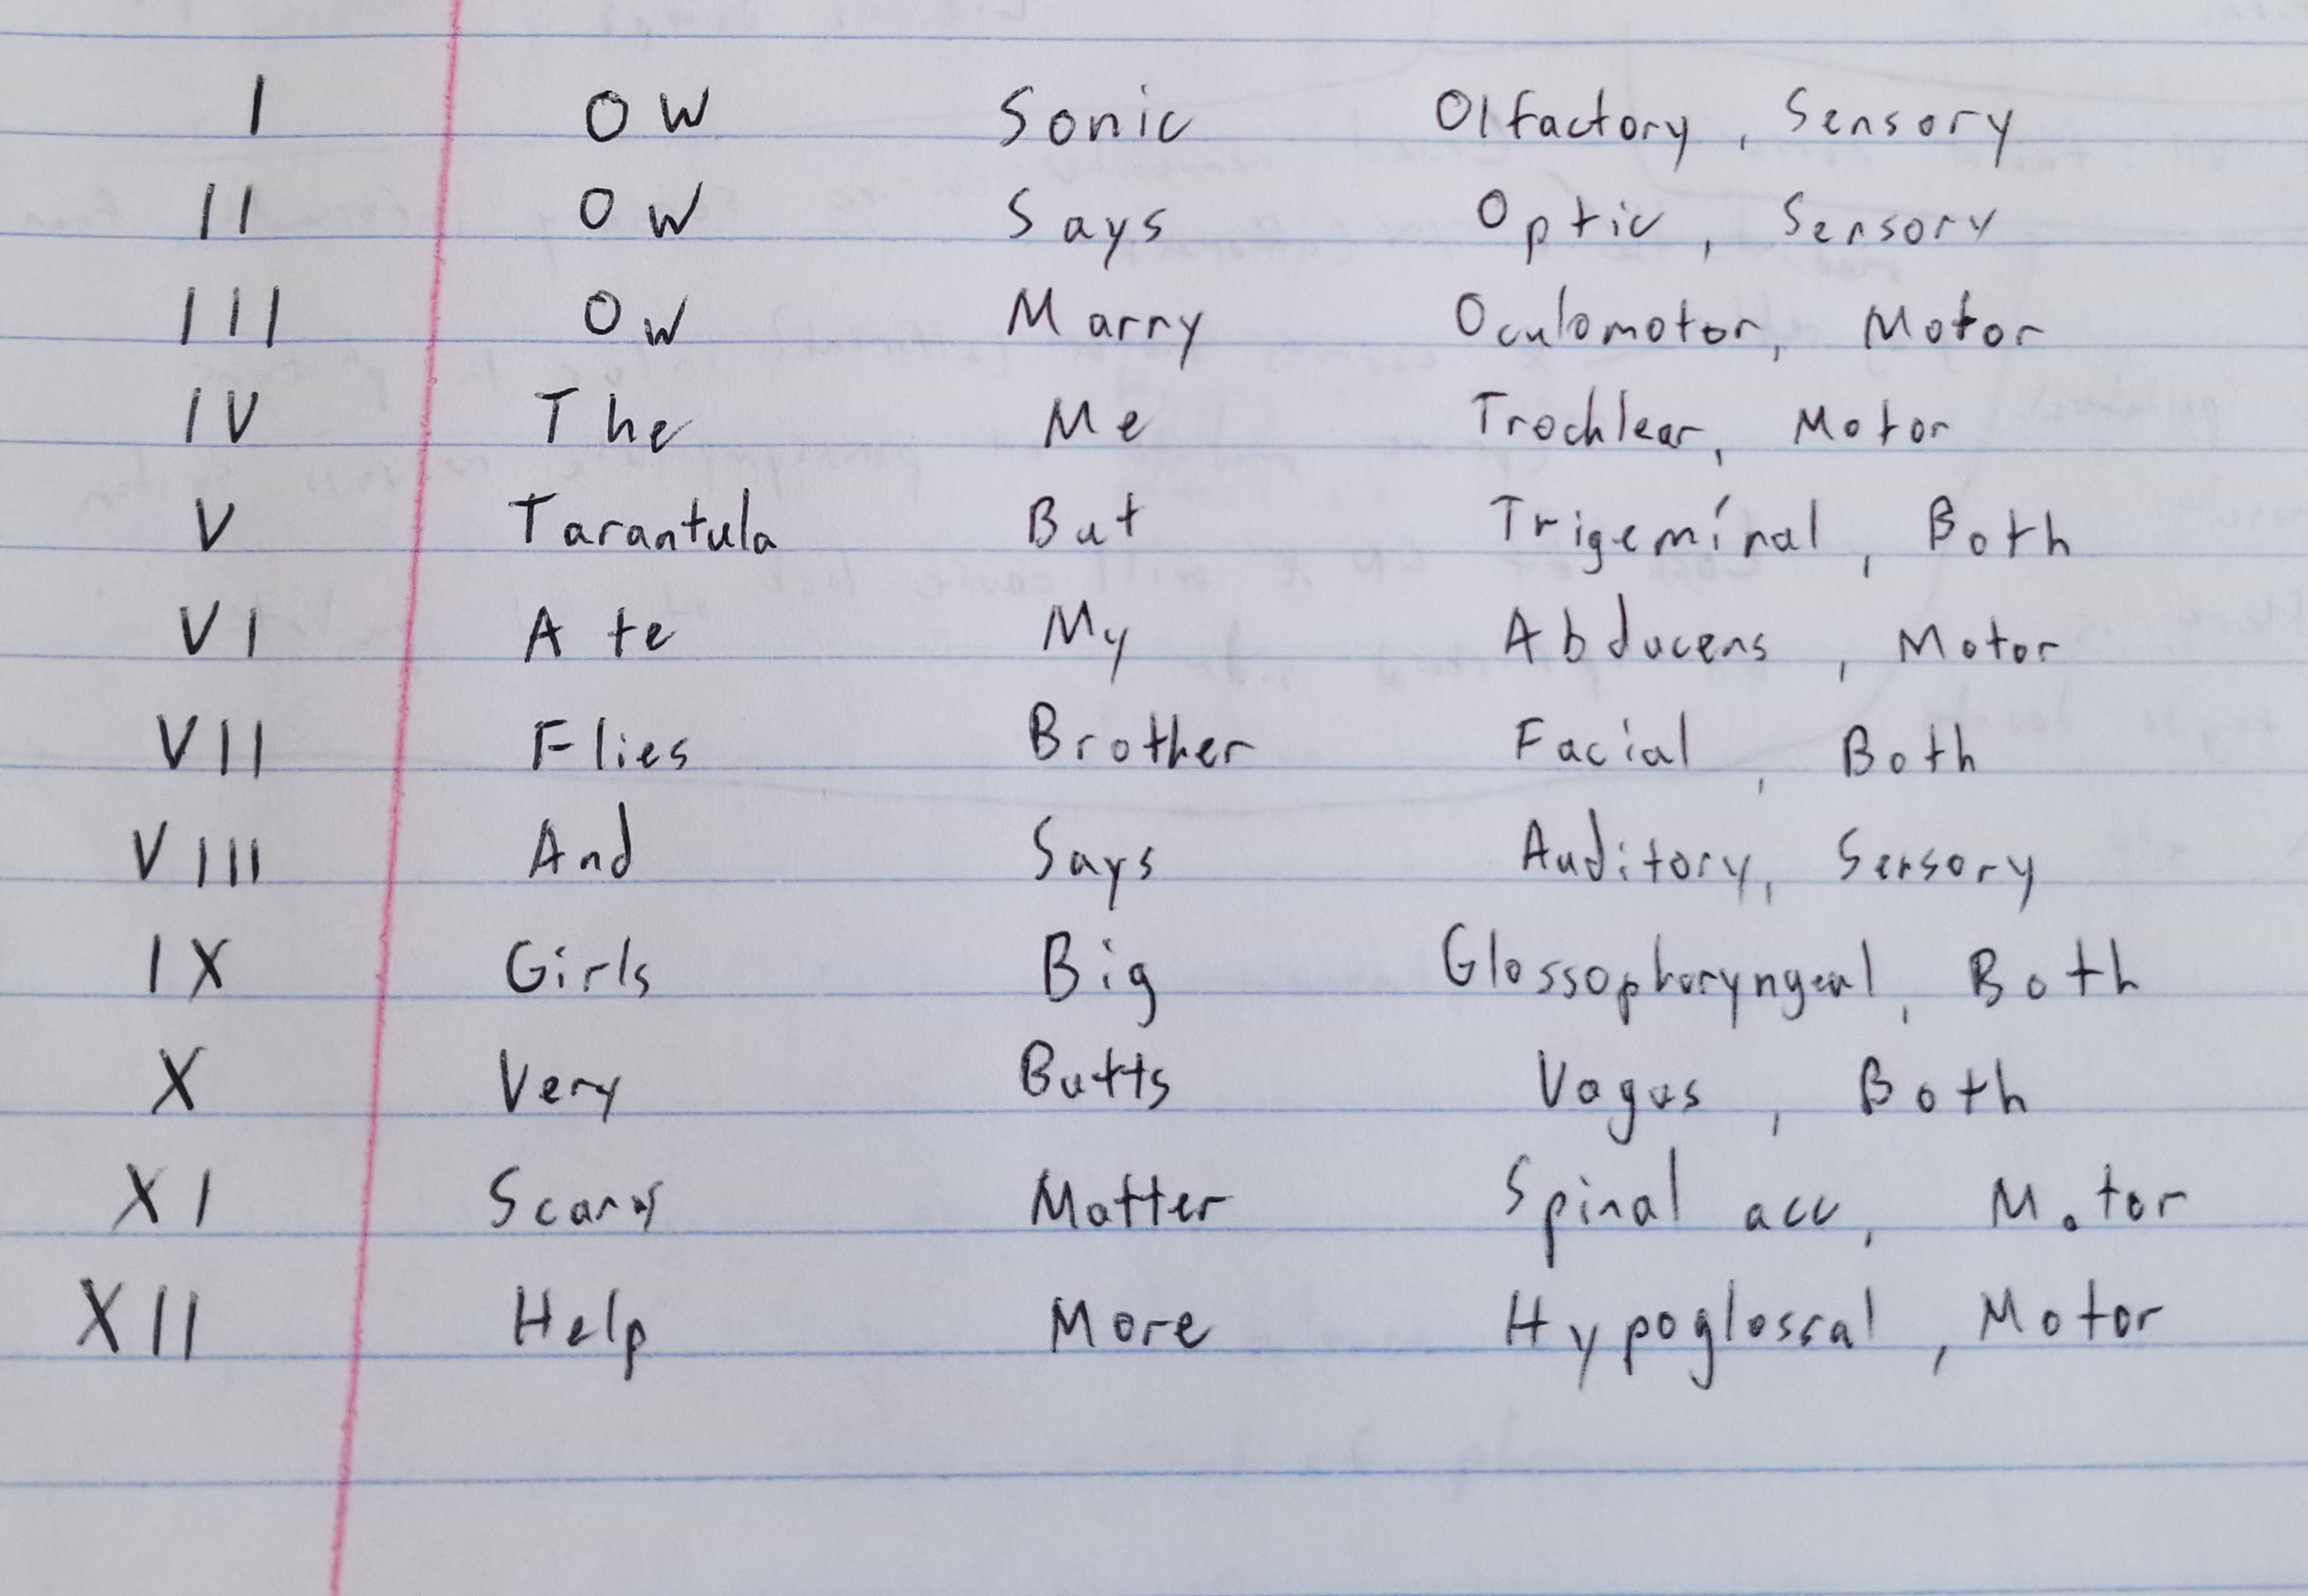 I OW Sonic Olfactory, Sensory
II OW Says Optic, Sensory
III OW Marry Oculomotor, Motor
IV The Me Trochlear, Motor
V Tarantula But Trigeminal, Both
VI Ate My Abducens, Motor
VII Flies Brother Facial, Both
VIII And Says Auditory, Sensory
IX Girls Big Glossopharyngeal, Both
X Very Butts Vagus, Both
XI Scary Matter Spinal acc, Motor
XII Help More Hypoglossal, Motor